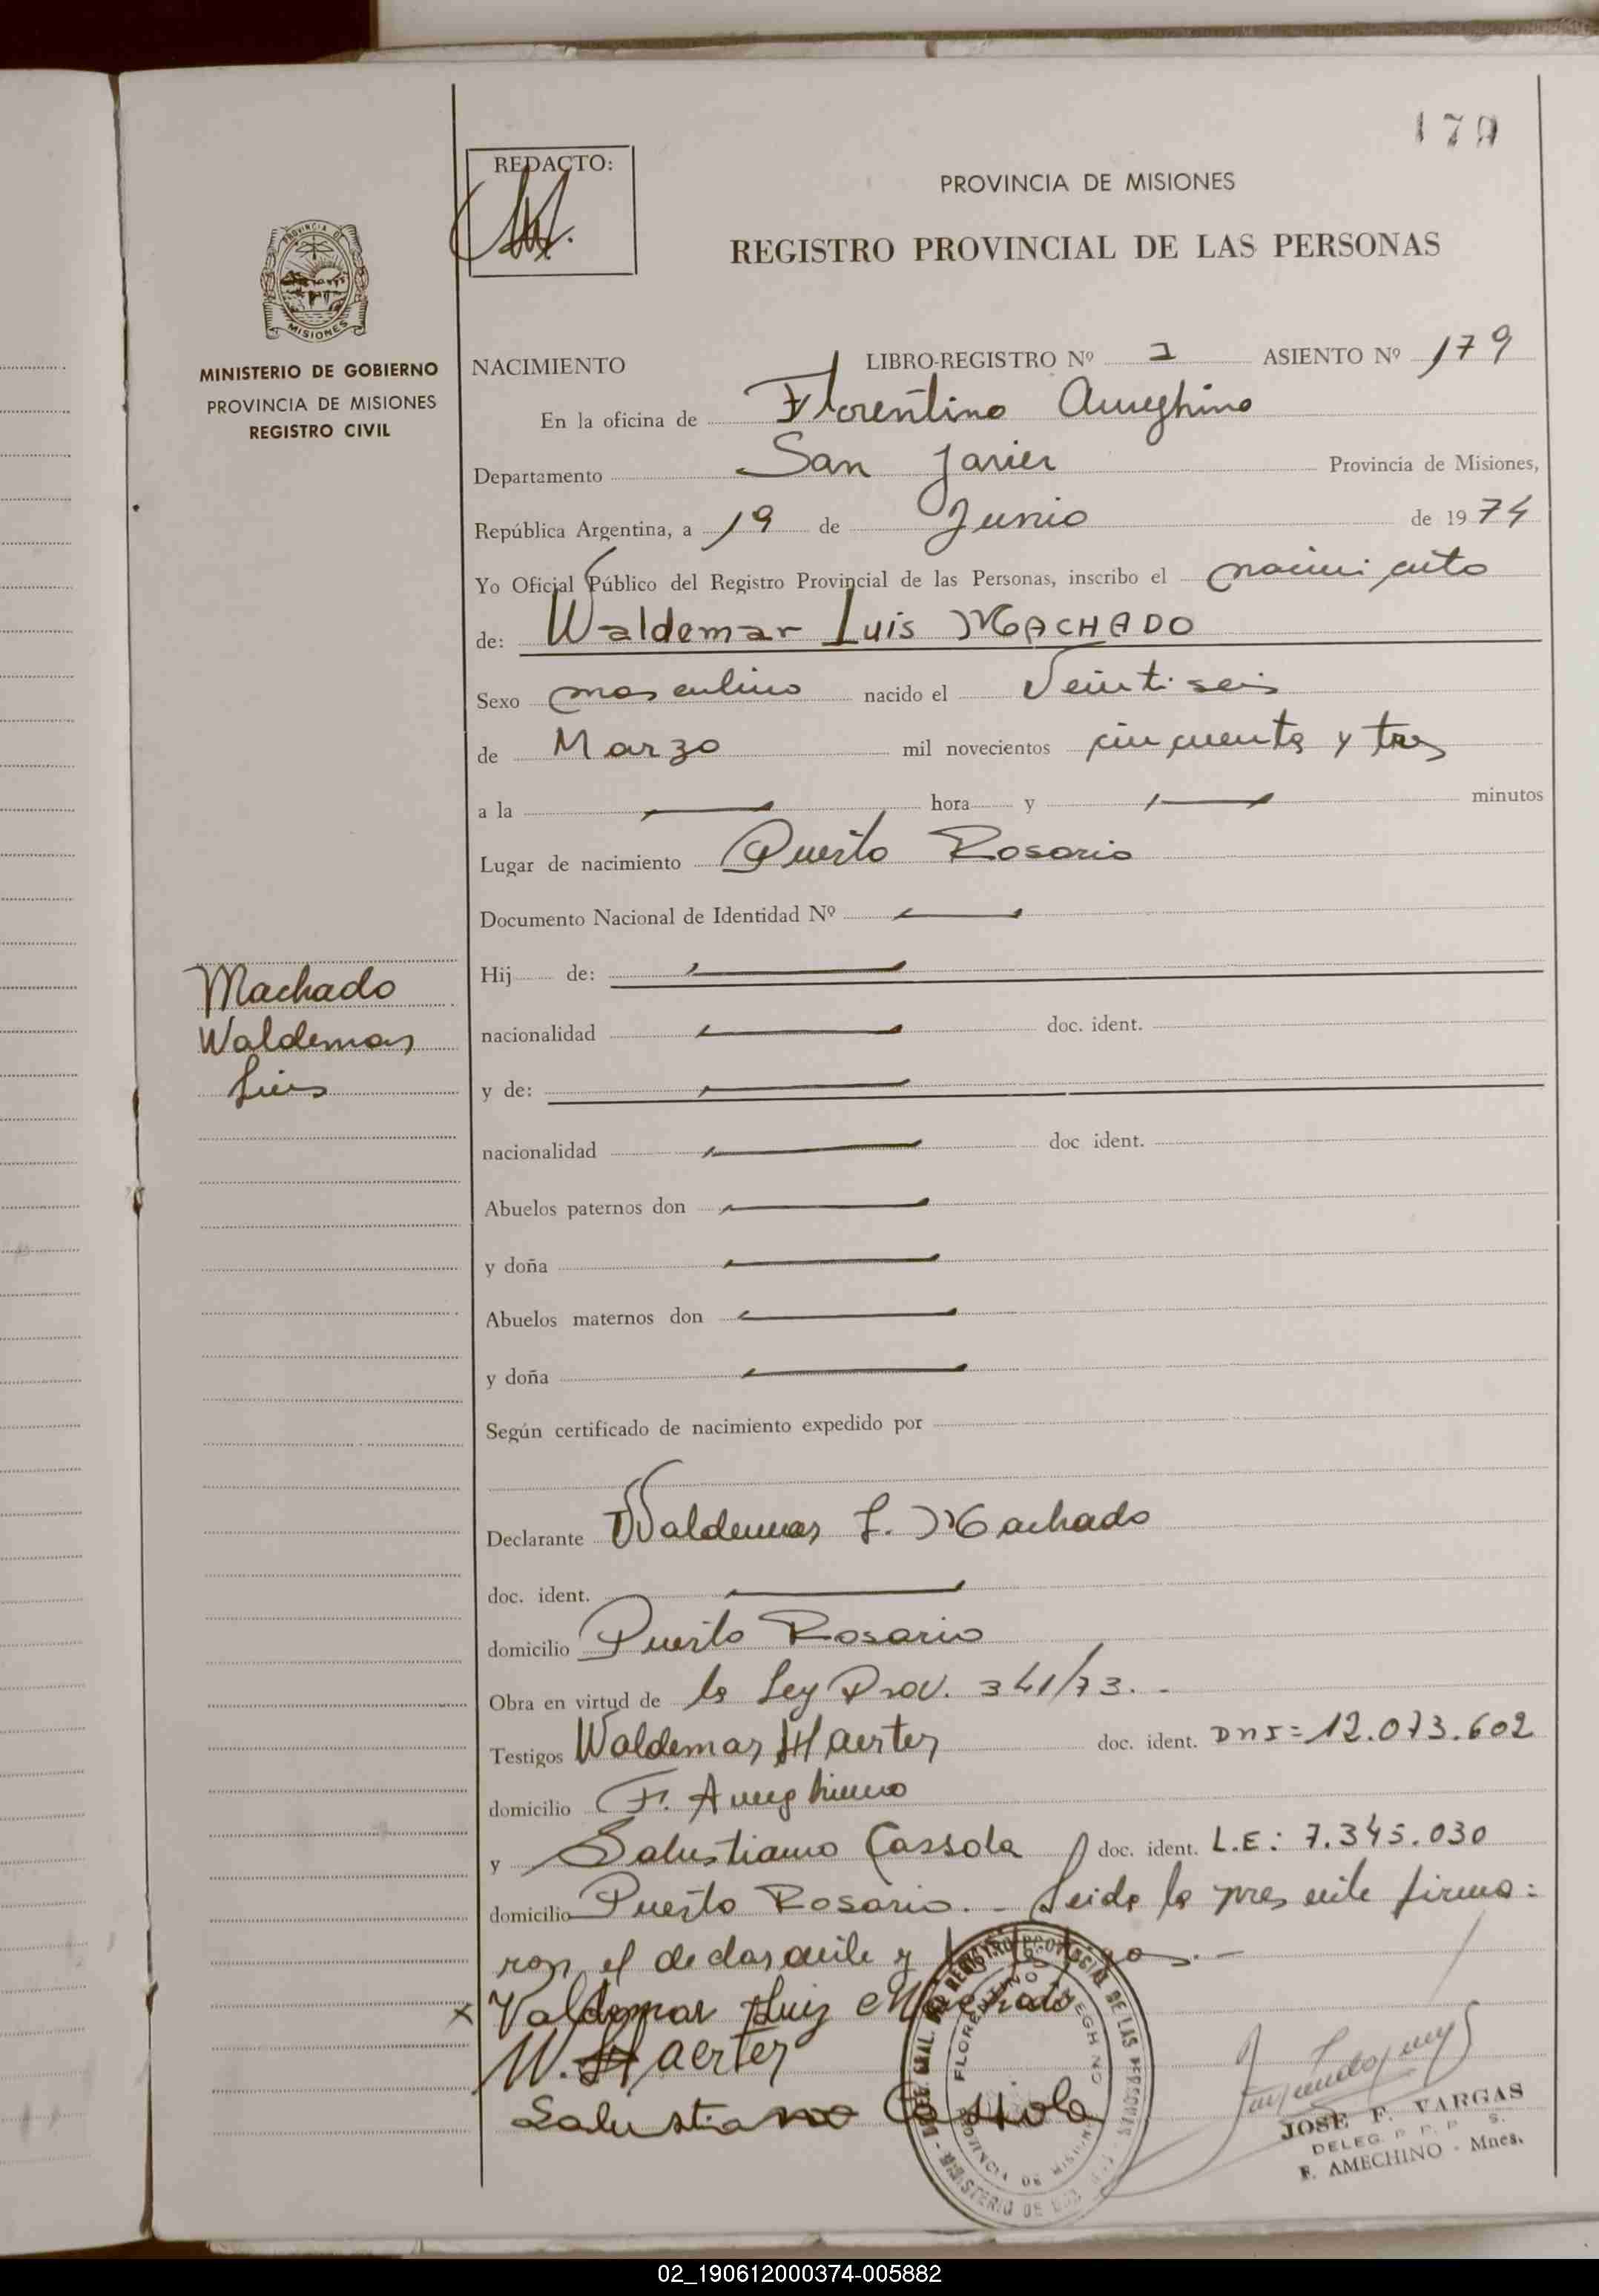 179
REDACTO:
PROVINCIA DE MISIONES
REGISTRO PROVINCIAL DE LAS PERSONAS
PROVINCIA DE
MISIONES
MINISTERIO DE GOBIERNO
PROVINCIA DE MISIONES
REGISTRO CIVIL
NACIMIENTO LIBRO-REGISTRO Nº 1 ASIENTO Nº 179
En la oficina de Florentino Ameghino
Departamento San Javier Provincia de Misiones,
República Argentina, a 19 de Junio de 1974
Yo Oficial Público del Registro Provincial de las Personas, inscribo el nacimiento
de: Waldemar Luis MACHADO
Sexo masculino nacido el Veintiseis
de Marzo mil novecientos cincuenta y tres
a la — hora y — minutos
Lugar de nacimiento Puerto Rosario
Documento Nacional de Identidad Nº —
Hij de: —
nacionalidad — doc. ident.
y de: —
nacionalidad — doc ident.
Machado
Waldemar
Luis
Abuelos paternos don —
y doña —
Abuelos maternos don —
y doña —
Según certificado de nacimiento expedido por
Declarante Waldemar L. Machado
doc. ident. —
domicilio Puerto Rosario
Obra en virtud de la Ley Prov. 341/73. -
Testigos Waldemar Haerter doc. ident. DNI= 12.073.602
domicilio F. Ameghino
y Salustiano Cassola doc. ident. L.E: 7.345.030
domicilio Puerto Rosario. - Leida la presente firma=
ron el declarante y testigos. -
x Valdemar Luiz Machado
W. Haerter
Salustiano Cassola
FLORENTINO AMEGHINO
PROVINCIA DE MISIONES
JOSE F. VARGAS
DELEG. R. P. P. S.
F. AMECHINO - Mnes.
02_190612000374-005882